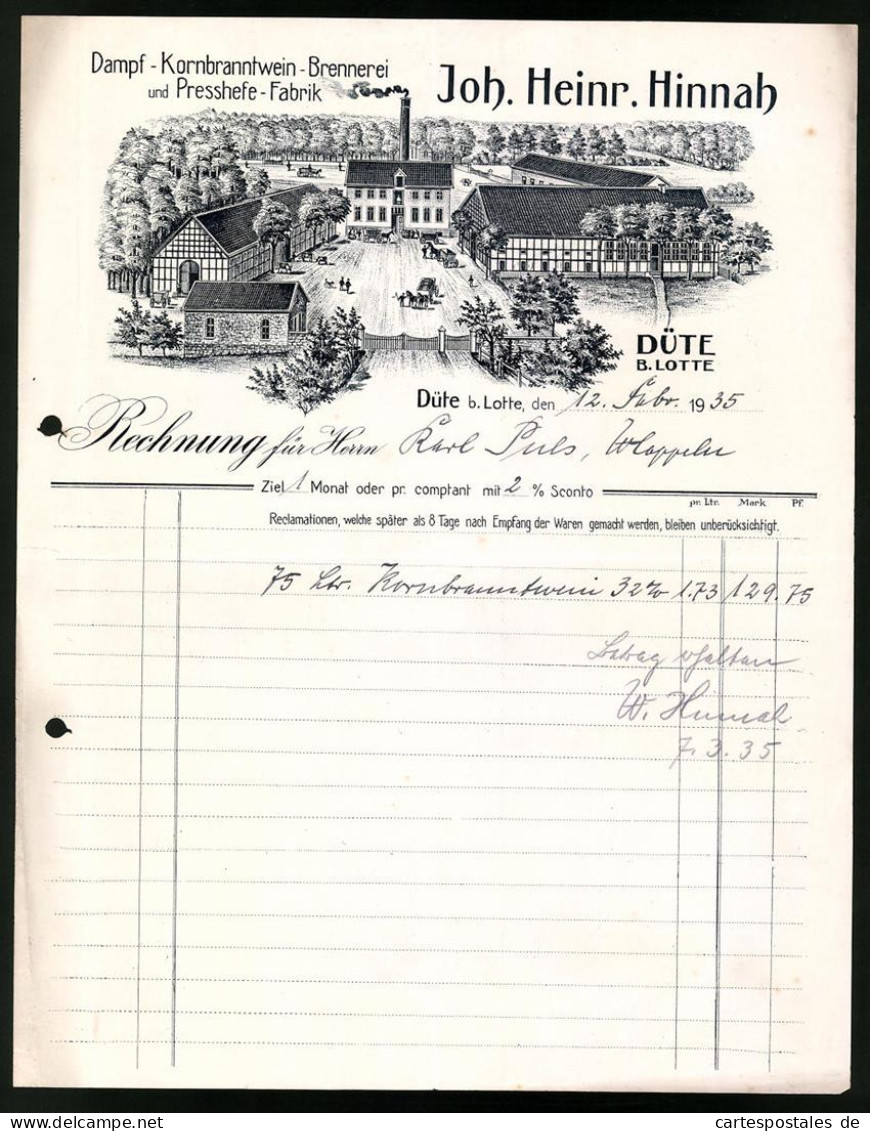 Dampf-Kornbranntwein-Brennerei
und Presshefe-Fabrik
Joh. Heinr. Hinnah
DÜTE
B. LOTTE
Düte b. Lotte, den 12. Febr. 1935
Rechnung für Herrn Karl Puls,
Ziel 1 Monat oder pr. comptant mit 2 % Sconto
pr. Ltr. Mark Pf.
Reclamationen, welche später als 8 Tage nach Empfang der Waren gemacht werden, bleiben unberücksichtigt.
75 Ltr. Kornbranntwein 32% 1.73 129.75
Betrag erhalten
W. Hinnah
7.3.35
DELCAMPE.NET
cartespostales de